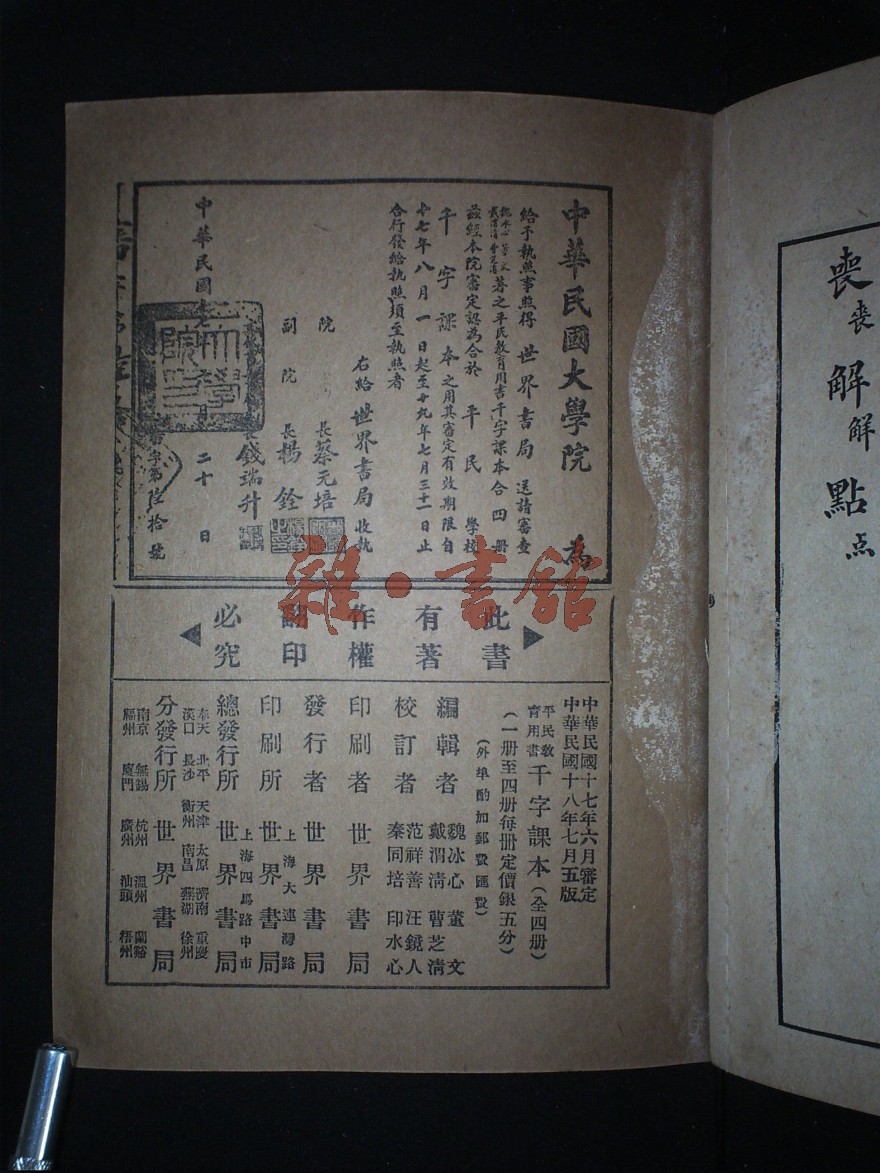 中華民國大學院 為
給予執照事照得 世界書局 送請審查
魏冰心 董文
戴渭清 曹芝清 著之平民教育用書千字課本合四册
茲經本院審定認為合於 平民 學校
千字課本之用其審定有效期限自
十七年八月一日起至十九年七月三十一日止
合行發給執照須至執照者
右給世界書局收執
院長蔡元培
副院長楊銓
長錢瑞升
中華民國十七年 月二十日
字第陸拾號
此書
有著
作權
翻印
必究
中華民國十七年六月審定
中華民國十八年七月五版
平民教育用書 千字課本(全四册)
(一册至四册每册定價銀五分)
(外埠酌加郵費匯費)
編輯者 魏冰心 董文 戴渭清 曹芝清
校訂者 范祥善 汪鏡人 秦同培 印水心
印刷者 世界書局
發行者 世界書局
印刷所 上海大連灣路 世界書局
總發行所 上海四馬路中市 世界書局
分發行所 世界書局
奉天 北平 天津 太原 濟南 重慶
漢口 長沙 衡州 南昌 蕪湖 徐州
南京 無錫 杭州 溫州 蘭谿
福州 廈門 廣州 汕頭 梧州
喪喪 解解 點点
雜·書館